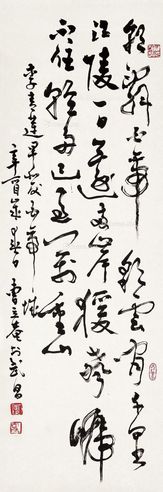 朝辭白帝彩雲間千里
江陵一日還兩岸猨聲啼
不住輕舟已過萬重山
李青蓮早發白帝城
辛酉歲春日曹立庵於武昌